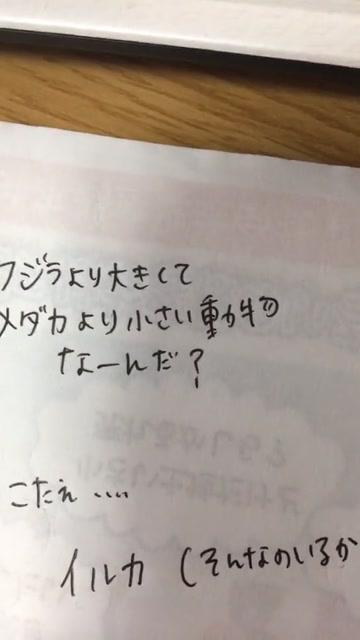 クジラより大きくて
メダカより小さい動物
なーんだ？
こたえ‥‥
イルカ（そんなのいるか